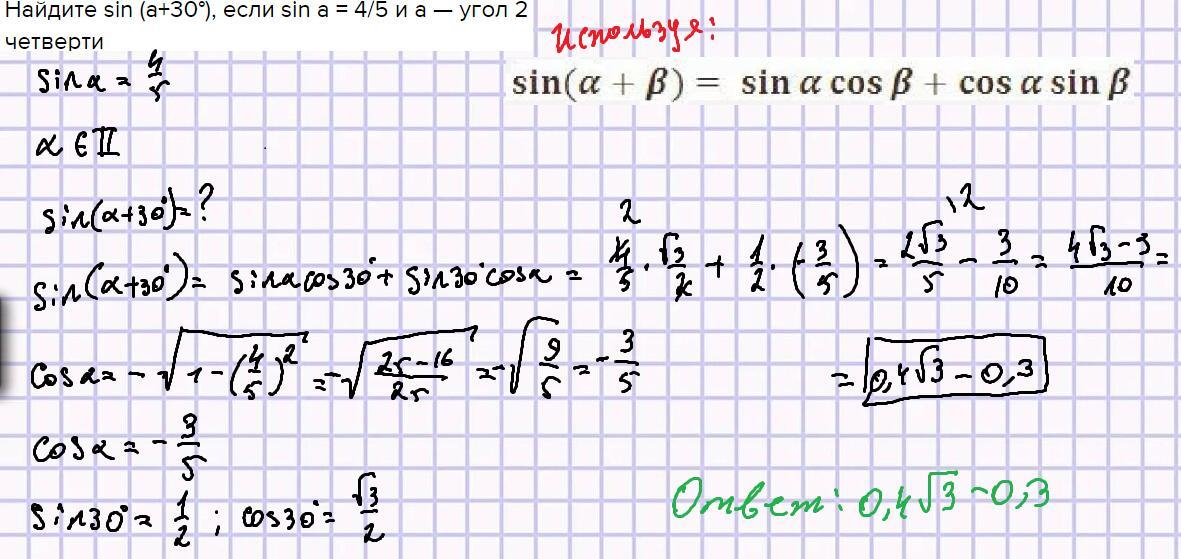 Найдите sin (a+30°), если sin a = 4/5 и a — угол 2
четверти
Используя:
sin(α + β) = sin α cos β + cos α sin β
sinα = 4/5
α ∈ II
sin(α+30°)=?
sin(α+30°)= sinα cos30° + sin30° cosα = 4/5 · √3/2 + 1/2 · (-3/5) = 2√3/5 - 3/10 = 4√3-3/10 =
2
\2
cosα = -√1-(4/5)² = -√25-16/25 = -√9/5 = -3/5
= 0,4√3 - 0,3
cosα = -3/5
sin30° = 1/2 ; cos30° = √3/2
Ответ: 0,4√3-0,3